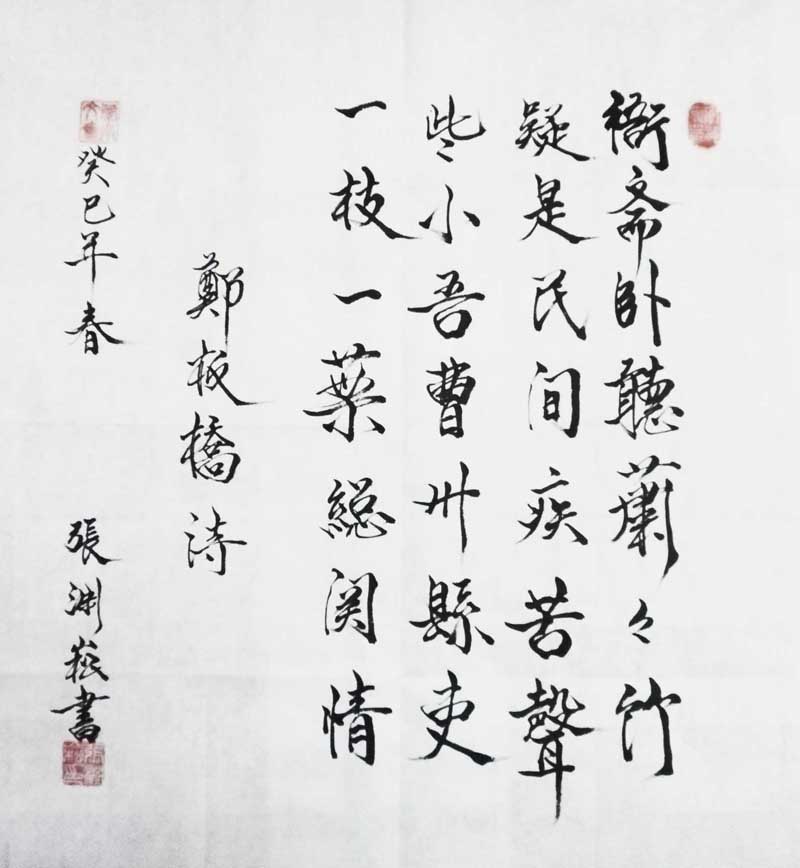 衙斋卧聽蕭々竹
疑是民间疾苦聲
些小吾曹州縣吏
一枝一葉總关情
鄭板橋詩
癸巳年春
張渊菘書